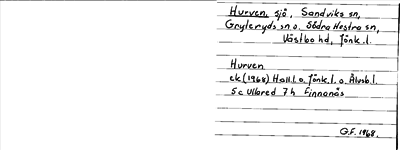 Hurven, sjö, Sandviks sn,
Gryteryds sn o. Södra Hestra sn,
Västbo hd, Jönk. l.
Hurven
ek (1968) Hall. l. o. Jönk. l. o. Älvsb. l.
5c Ulared 7h Finnanäs
G.F. 1968.